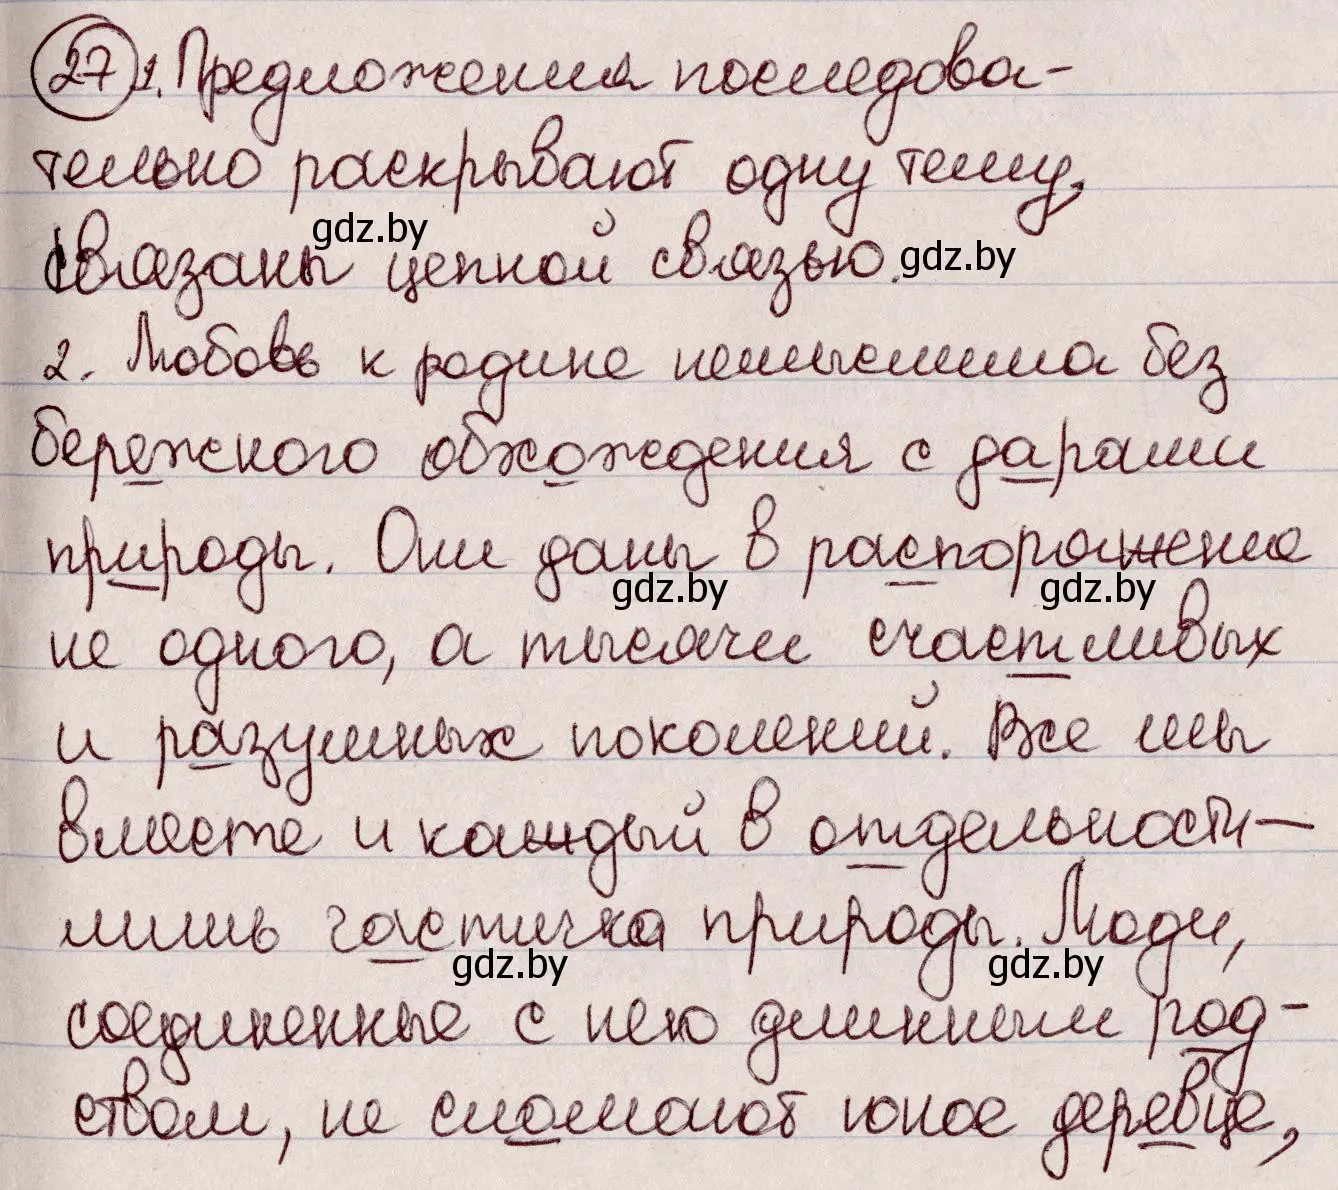 27 1. Предложения последова-
тельно раскрывают одну тему,
связаны цепной связью.
gdz.by
gdz.by
2. Любовь к родине немыслима без
бережного обхождения с дарами
природы. Они даны в распоряжение
gdz.by
gdz.by
не одного, а тысячи счастливых
и разумных поколений. Все мы
вместе и каждый в отдельности –
лишь частичка природы. Люди,
gdz.by
gdz.by
соединенные с нею длинным род-
ством, не сломают юное деревце,